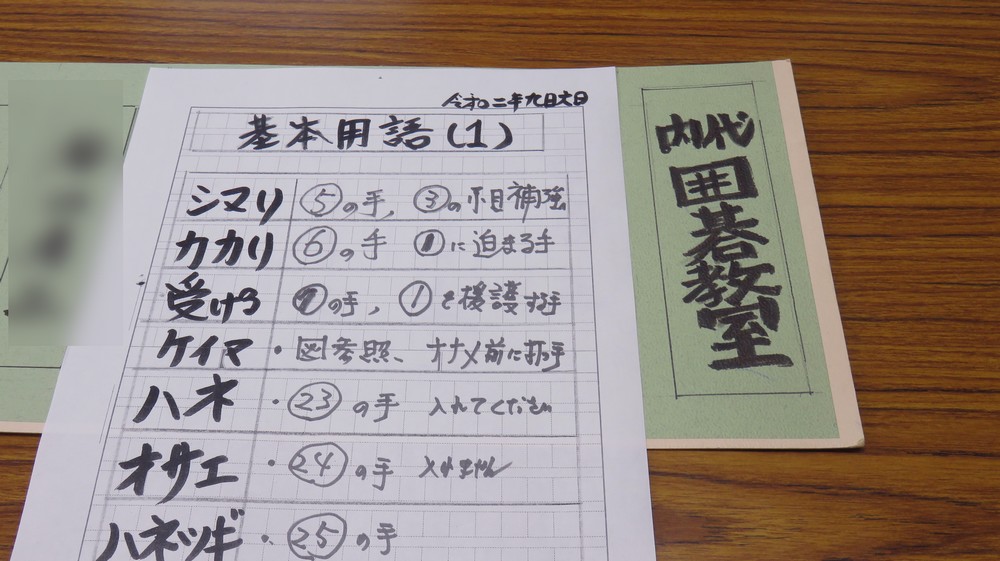 令和二年九月六日
基本用語(1)
シマリ ⑤の手、 ③の小目補強
カカリ ⑥の手 ❶に迫まる手
受ける ❼の手, ①を援護する手
ケイマ ・図参照、 ナナメ前に打つ手
ハネ ・㉓の手 入れてください
オサエ ・㉔の手 入れません
ハネツギ ・㉕の手
内代
囲碁教室